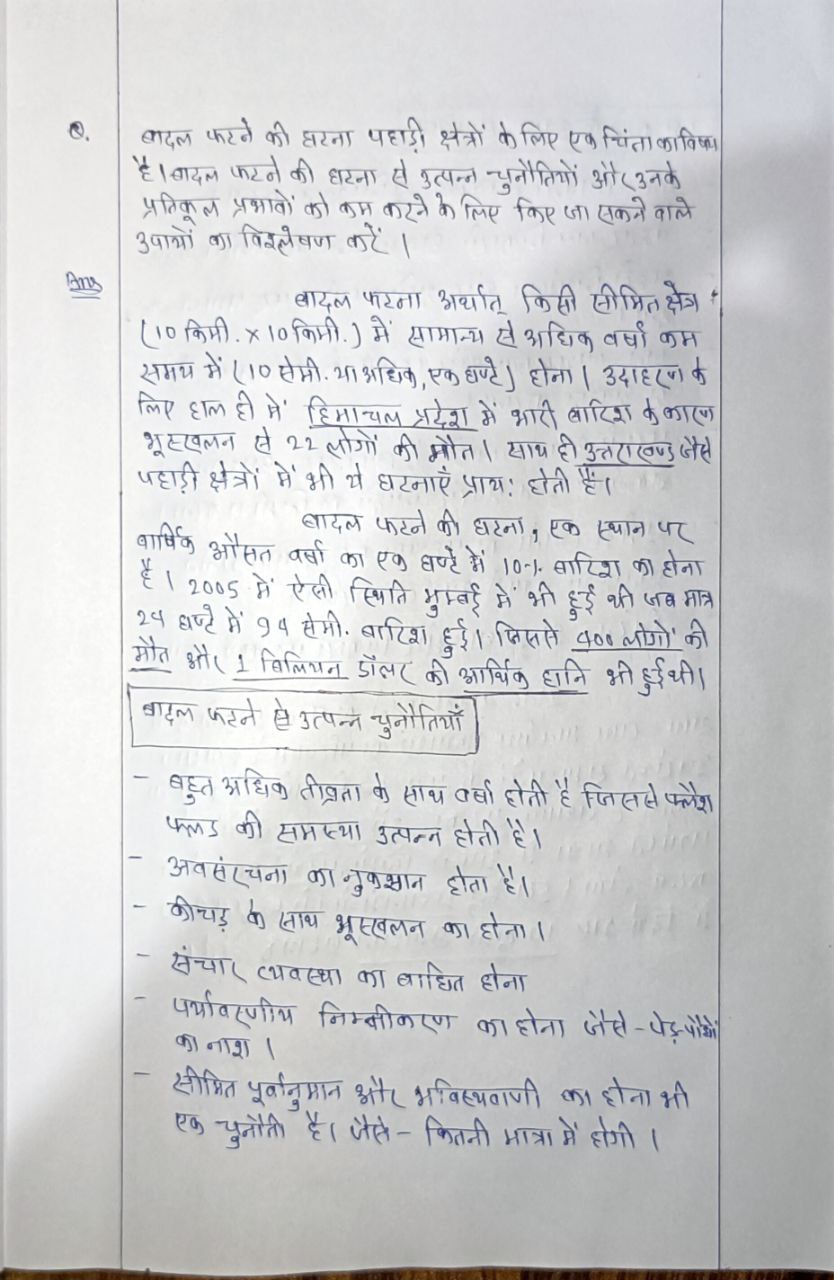 Q. बादल फटने की घटना पहाड़ी क्षेत्रों के लिए एक चिंता का विषय
है। बादल फटने की घटना से उत्पन्न चुनौतियों और उनके
प्रतिकूल प्रभावों को कम करने के लिए किए जा सकने वाले
उपायों का विश्लेषण करें ।
Ans बादल फटना अर्थात् किसी सीमित क्षेत्र
(10 किमी. × 10 किमी.) में सामान्य से अधिक वर्षा कम
समय में (10 सेमी. या अधिक, एक घण्टे) होना। उदाहरण के
लिए हाल ही में हिमाचल प्रदेश में भारी बारिश के कारण
भूस्खलन से 22 लोगों की मौत। साथ ही उत्तराखण्ड जैसे
पहाड़ी क्षेत्रों में भी ये घटनाएँ प्राय: होती हैं।
बादल फटने की घटना, एक स्थान पर
वार्षिक औसत वर्षा का एक घण्टे में 10% बारिश का होना
है। 2005 में ऐसी स्थिति मुम्बई में भी हुई थी जब मात्र
24 घण्टे में 94 सेमी. बारिश हुई। जिससे 400 लोगों की
मौत और 1 बिलियन डॉलर की आर्थिक हानि भी हुई थी।
बादल फटने से उत्पन्न चुनौतियाँ
- बहुत अधिक तीव्रता के साथ वर्षा होती है जिससे फ्लैश
फ्लड की समस्या उत्पन्न होती है।
- अवसंरचना का नुकसान होता है।
- कीचड़ के साथ भूस्खलन का होना।
- संचार व्यवस्था का बाधित होना
- पर्यावरणीय निम्नीकरण का होना जैसे - पेड़-पौधों
का नाश।
- सीमित पूर्वानुमान और भविष्यवाणी का होना भी
एक चुनौती है। जैसे - कितनी मात्रा में होगी ।